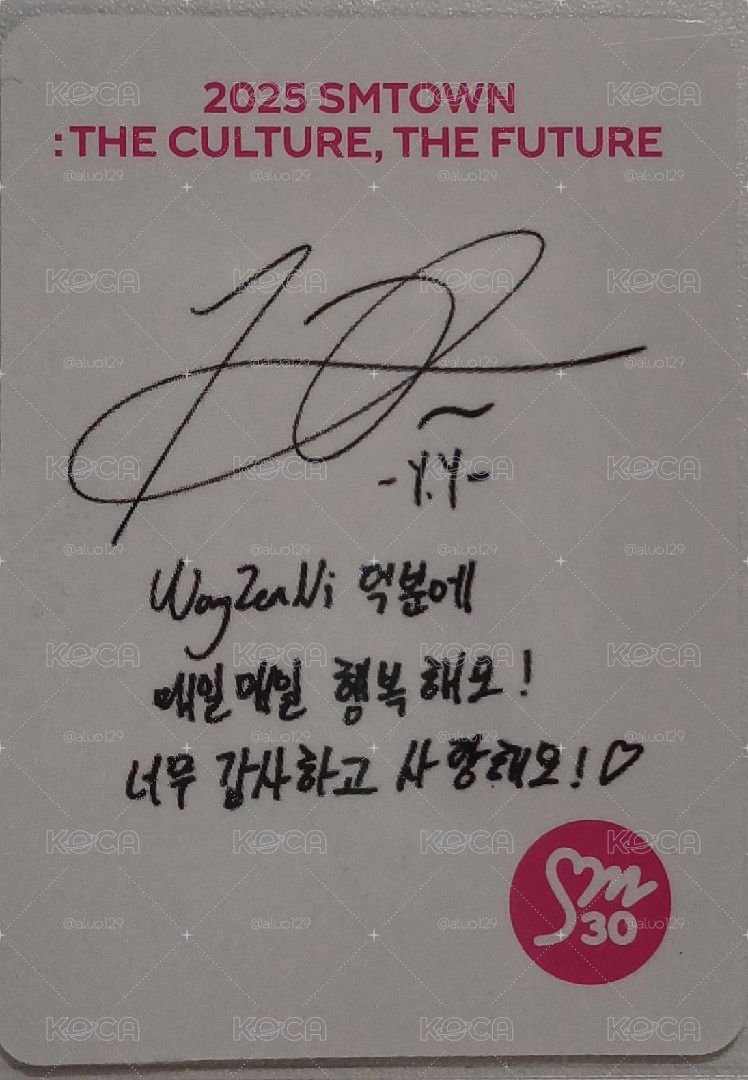 2025 SMTOWN
: THE CULTURE, THE FUTURE
-Y.Y-
WayZenNi 덕분에
매일매일 행복해요!
너무 감사하고 사랑해요!♡
Sm
30
KOCA
@aluo129